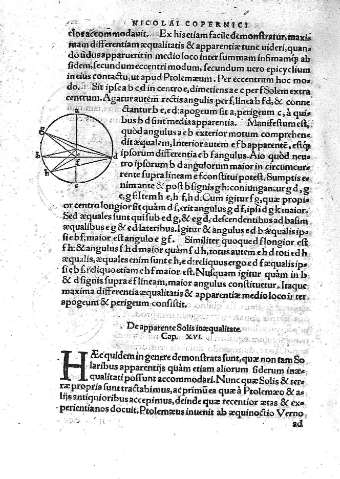 NICOLAI COPERNICI
clos accommodauit. Ex his etiam facile demonstratur, maxi
mam differentiam æqualitatis & apparentiæ tunc uideri, quan
do
fidem, secundum eccentri modum, uero epicyclium
in eius contactu, ut apud Ptolemæum. Per eccentrum hoc mo
do. Sit ipse a b c d in centro e, dimetiens a e c per f Solem extra
centrum. Agatur autem rectis angulis per f, linea b f d, & conne
ctantur b e, e d: apogeum sit a, perigeum c, à qui
bus b d sint mediæ apparentiæ. Manifestum est,
quòd angulus a e b exterior motum comprehen
dit æqualem, interior autem e f b apparentem, estq́;
ipsorum differentia e b f angulus. Aio quòd neu
tro ipsorum b d angulorum maior in circumcurre
nte supra lineam e f constitui potest. Sumptis e
nim ante & post b signis g h: coniungantur g d, g
e, g f: Item h e, h f, h d. Cum igitur f g, quæ propi
or centro longior sit quàm d f, erit angulus g d f, ipsi d g f maior.
Sed æquales sunt qui sub e d g, & e g d, descendentibus ad basim
æqualibus e g & e d lateribus. Igitur & angulus e d f æqualis ip
si e b f, maior est angulo e g f. Similiter quoque d f longior est
f h: & angulus f h d maior quàm f d h, totus autem e h d toti e d h
æqualis, æquales enim sunt e h, e d: reliquus ergo e d f æqualis ip
si e b f, reliquo etiam e h f maior est. Nusquam igitur quàm in b
& d signis supra e f lineam, maior angulus constituetur. Itaque
maxima differentia æqualitatis & apparentiæ medio loco inter
apogeum & perigeum consistit.
De apparente Solis inæqualitate.
Cap. XVI.
HÆc quidem in genere demonstrata sunt, quæ non tam So
laribus apparentijs quàm etiam aliorum siderum inæ-
qualitati possunt accommodari. Nunc quæ Solis & ter-
ræ propria sunt tractabimus, ac primum ea quæ à Ptolemæo & a-
lijs antiquioribus accepimus, deinde quæ recentior ætas & ex-
perientia nos docuit. Ptolemæus inuenit ab æquinoctio Verno
ad